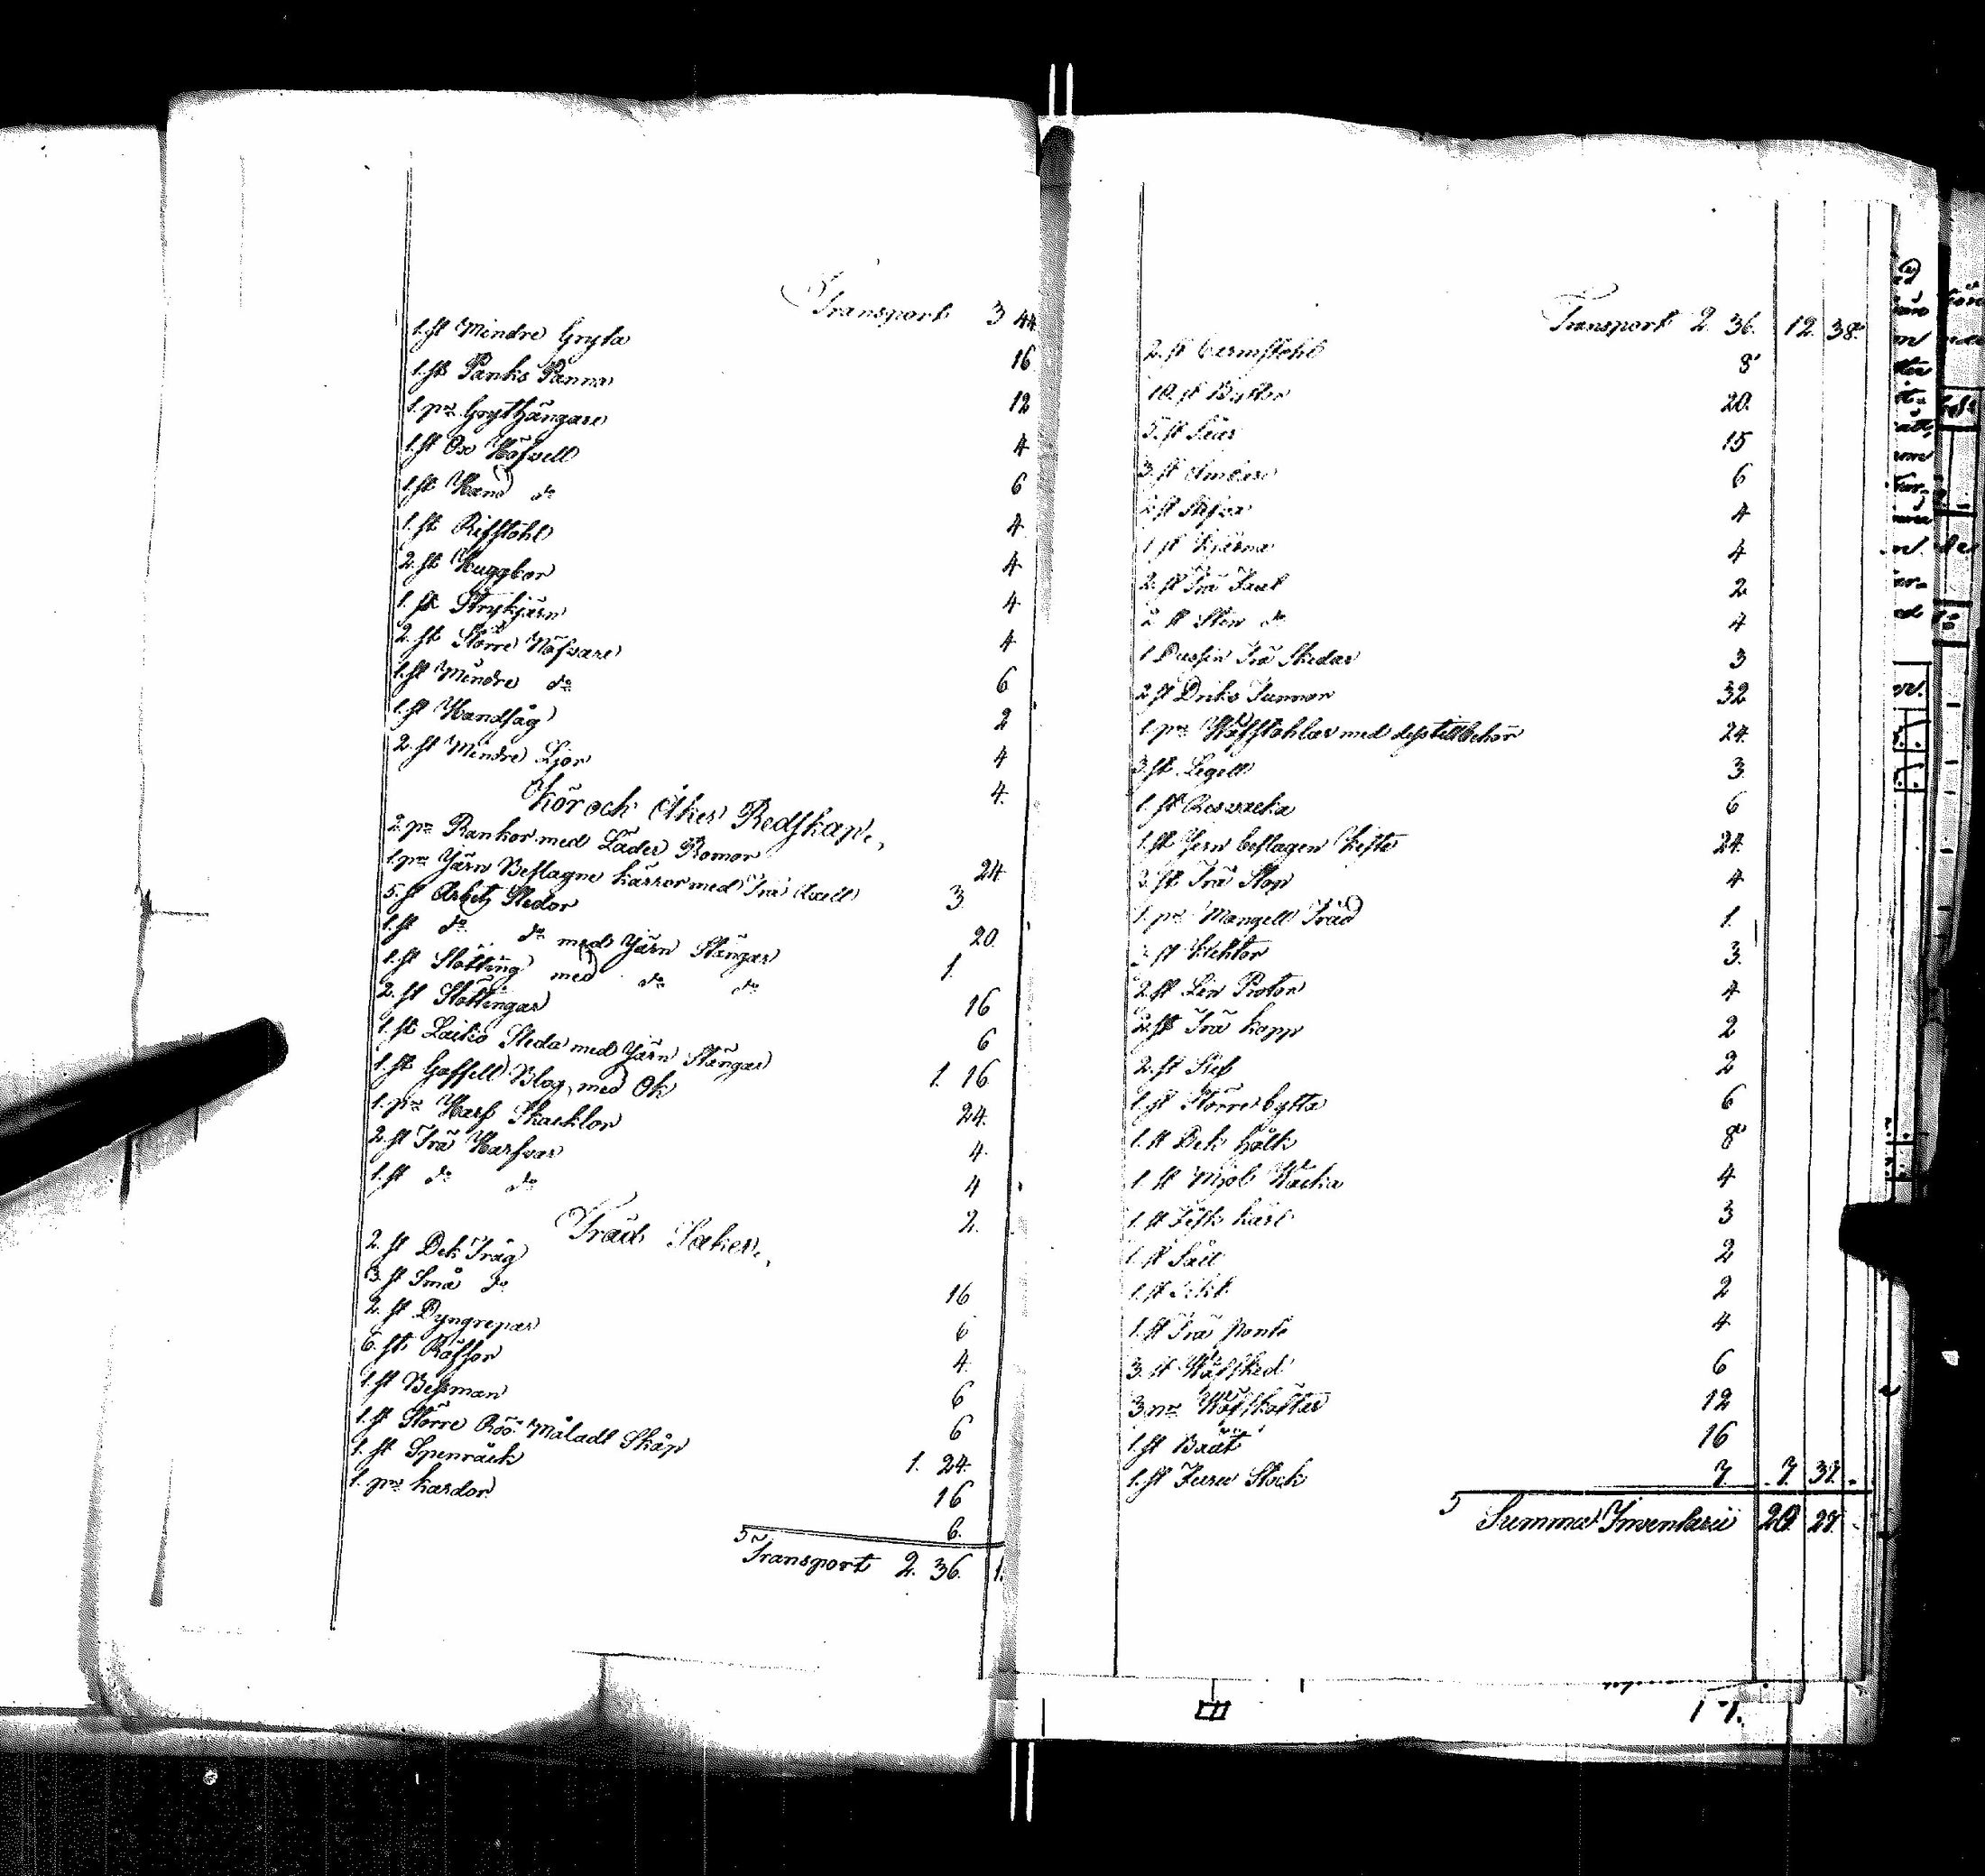 Transport 3 44
1. st Mindre Gryta 16
1. st Panks Panna 12
1. pr Grythängare 4
1. st Ox Höfvell 6
1. st Hand do 4
1. st Rifstohl 4
2. st Huggbor 4
1. st Strykjärn 4
2. st Större Nöfvare 6
1. st Mindre do 2
1. st Handsåg 4
2. st Mindre Ljor 4.
Kör och Åker Redskap,
2. pr Rankor med Läder Romor 24
1. pr Järn Beslagne kärror med Trä Axell 3
5. st Arbetz Sledor 20.
1. st do do med Järn Stänger 1.
1. st Slötting med do do 16
2. st Slöttingar 6
1. st Laiko Sleda med Järn Stänger 1. 16
1. st Gaffell Plog med Ok 24.
1. pr Harf Skacklor 4.
2. st Trä Harfvar 4
1. st do do 2.
Träd Saker,
2. st Dek Tråg 16
3. st Små do 6
2. st Dyngrepar 4.
6. st Räffsor 6
1. st Bessman 6
1. st Större Röd Måladt Skåp 1. 24.
1. st Spenräck 16
1. pr kardor 6.
Transport 2. 36. 1.
Transport 2. 36. 12. 38.
2. st karmstohl 8
10. st Byttor 20.
5. st Såar 15
3. st Ambare 6
2. st 4
1. st Kjärna 4
2. st Trä Faat 2
2. st Sten do 4
1 Dussin Trä Skedar 3
2. st Driks Tunnor 32
1. pr Wäfstohlar med dess tillbehör 24.
3. st Legell 3.
1. st Resväcka 6
1. st Jern beslagen Kista 24.
3. st Trä Stop 4
1. pr Mangell Träd 1.
3. st 3.
2. st Lin Rotor 4
2. st Trä kopp 2
2. st 2
1. st Större bytta 6
1. st Dek hålk 8
1. st Mjöl Wacka 4
1. st Fisk kärl 3
1. st Såll 2
1. st Sikt 2
1. st Trä ponto 4
3. st Wäfsked 6
3. pr Wäfskaftar 12
1. st Baåt 16
1. st Furu Stock 7 7. 37.
Summa Inventarii 20. 27.
17.